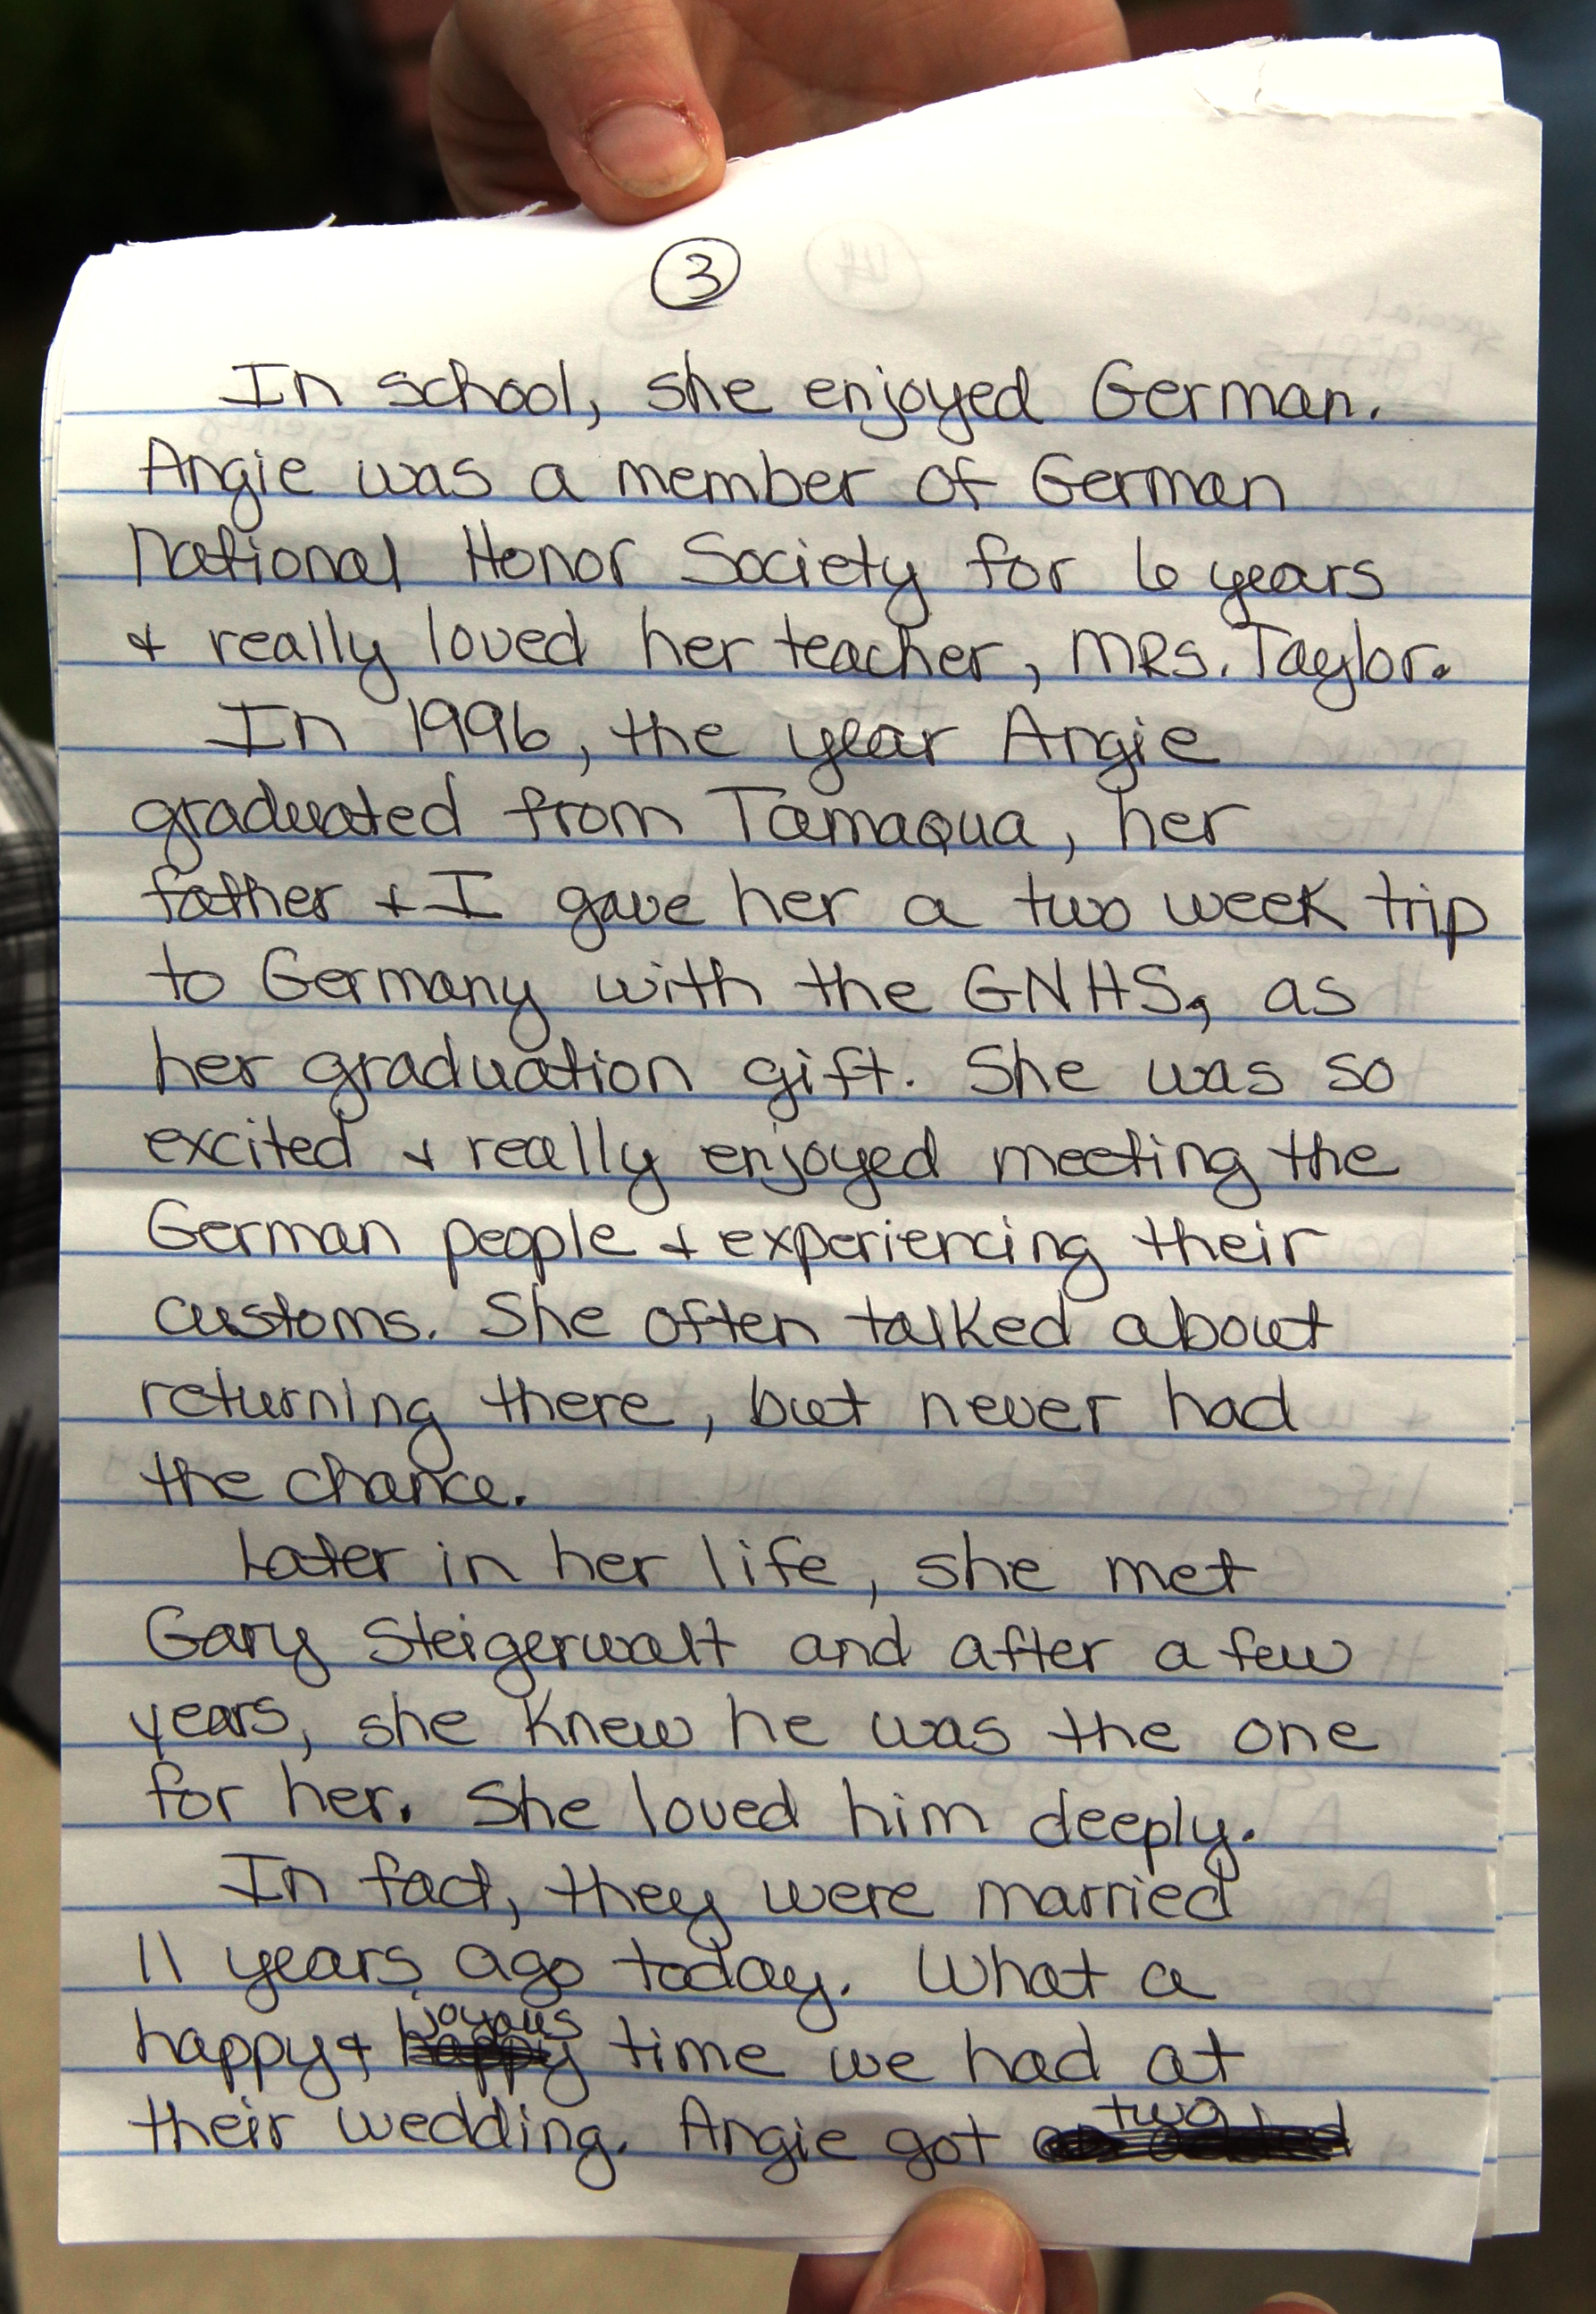 3
In school, she enjoyed German.
Angie was a member of German
National Honor Society for 6 years
+ really loved her teacher, MRs. Taylor.
In 1996, the year Angie
graduated from Tamaqua, her
father + I gave her a two week trip
to Germany with the GNHS, as
her graduation gift. She was so
excited + really enjoyed meeting the
German people + experiencing their
customs. She often talked about
returning there, but never had
the chance.
Later in her life, she met
Gary Steigerwalt and after a few
years, she knew he was the one
for her. She loved him deeply.
In fact, they were married
11 years ago today. What a
happy + joyous time we had at
their wedding. Angie got two